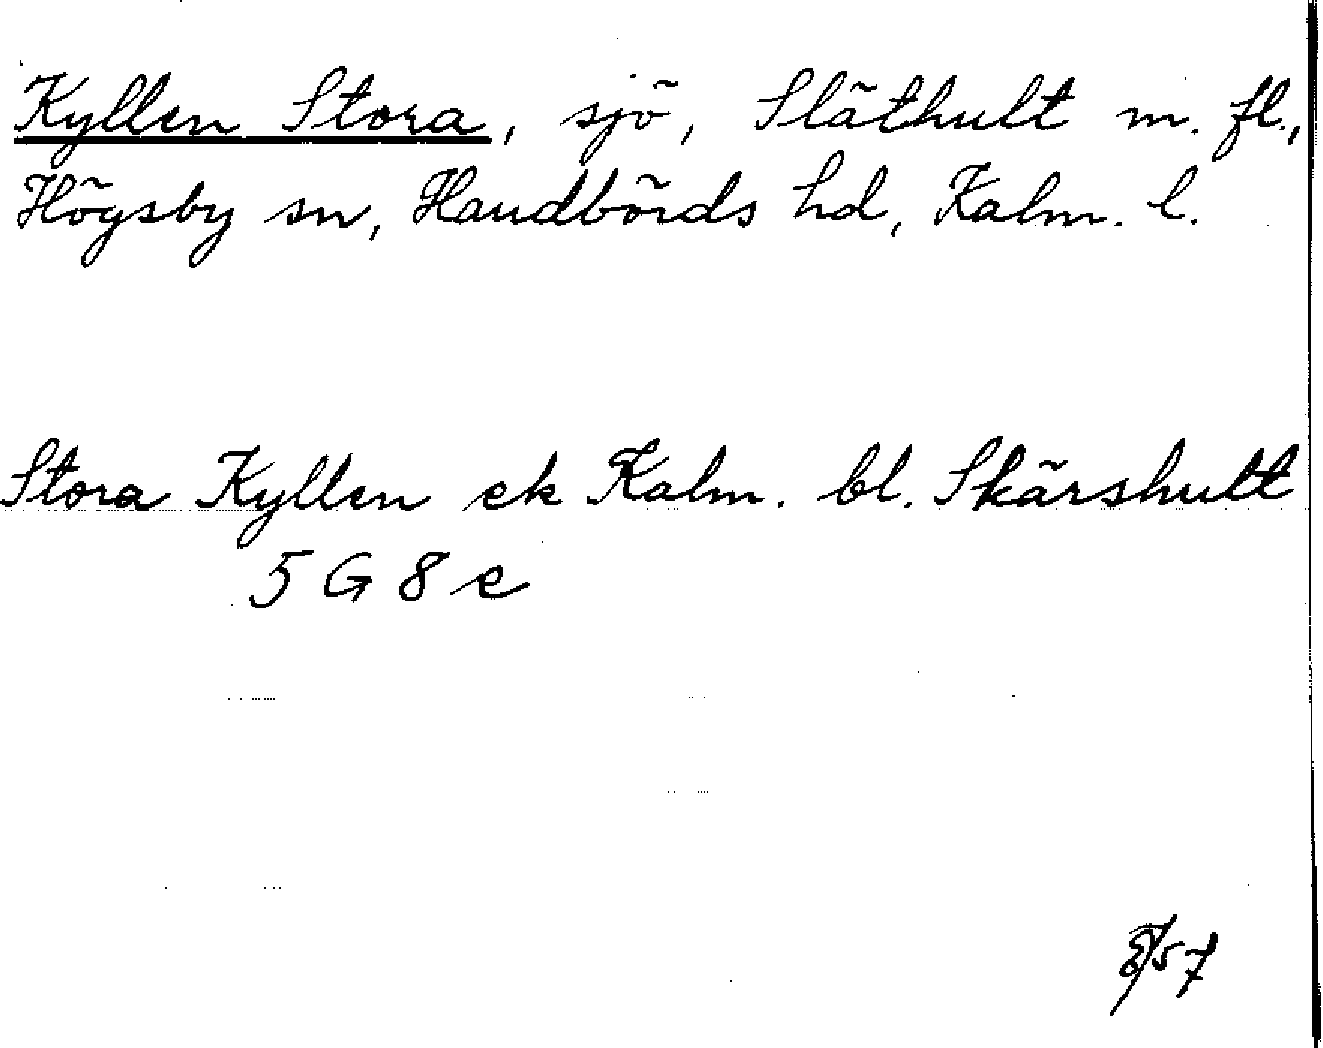 Kyllen Stora, sjö, Släthult m. fl.,
Högsby sn, Handbörds hd, Kalm. l.
Stora Kyllen ek Kalm. bl. Skärshult
5 G 8 e